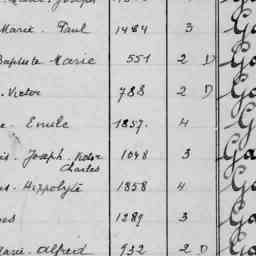 Marie. Paul 1484 3 Ga
Baptiste Marie 551 2 D Ga
. Victor 788 2 D Ga
e. Emile 1857. 4 Ga
is. Joseph. Victor Charles 1048 3 Ga
s. Hippolyte 1858 4 Ga
es 1289 3 Ga
Marie. Alfred 932 2 D Ga